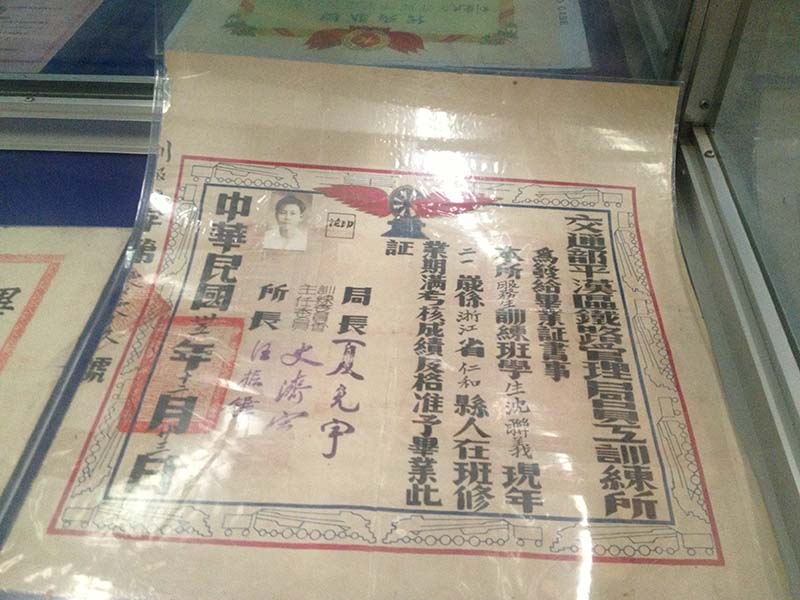 交通部平漢區鐵路管理局員工訓練所
為發給畢業証書事
本所服務生訓練班學生沈聯義現年
二一歲係浙江省仁和縣人在班修
業期滿考核成績及格准予畢業此
証
局長夏光宇
訓練委員會
主任委員
所長汪振
中華民國卅五年十二月廿二日
號